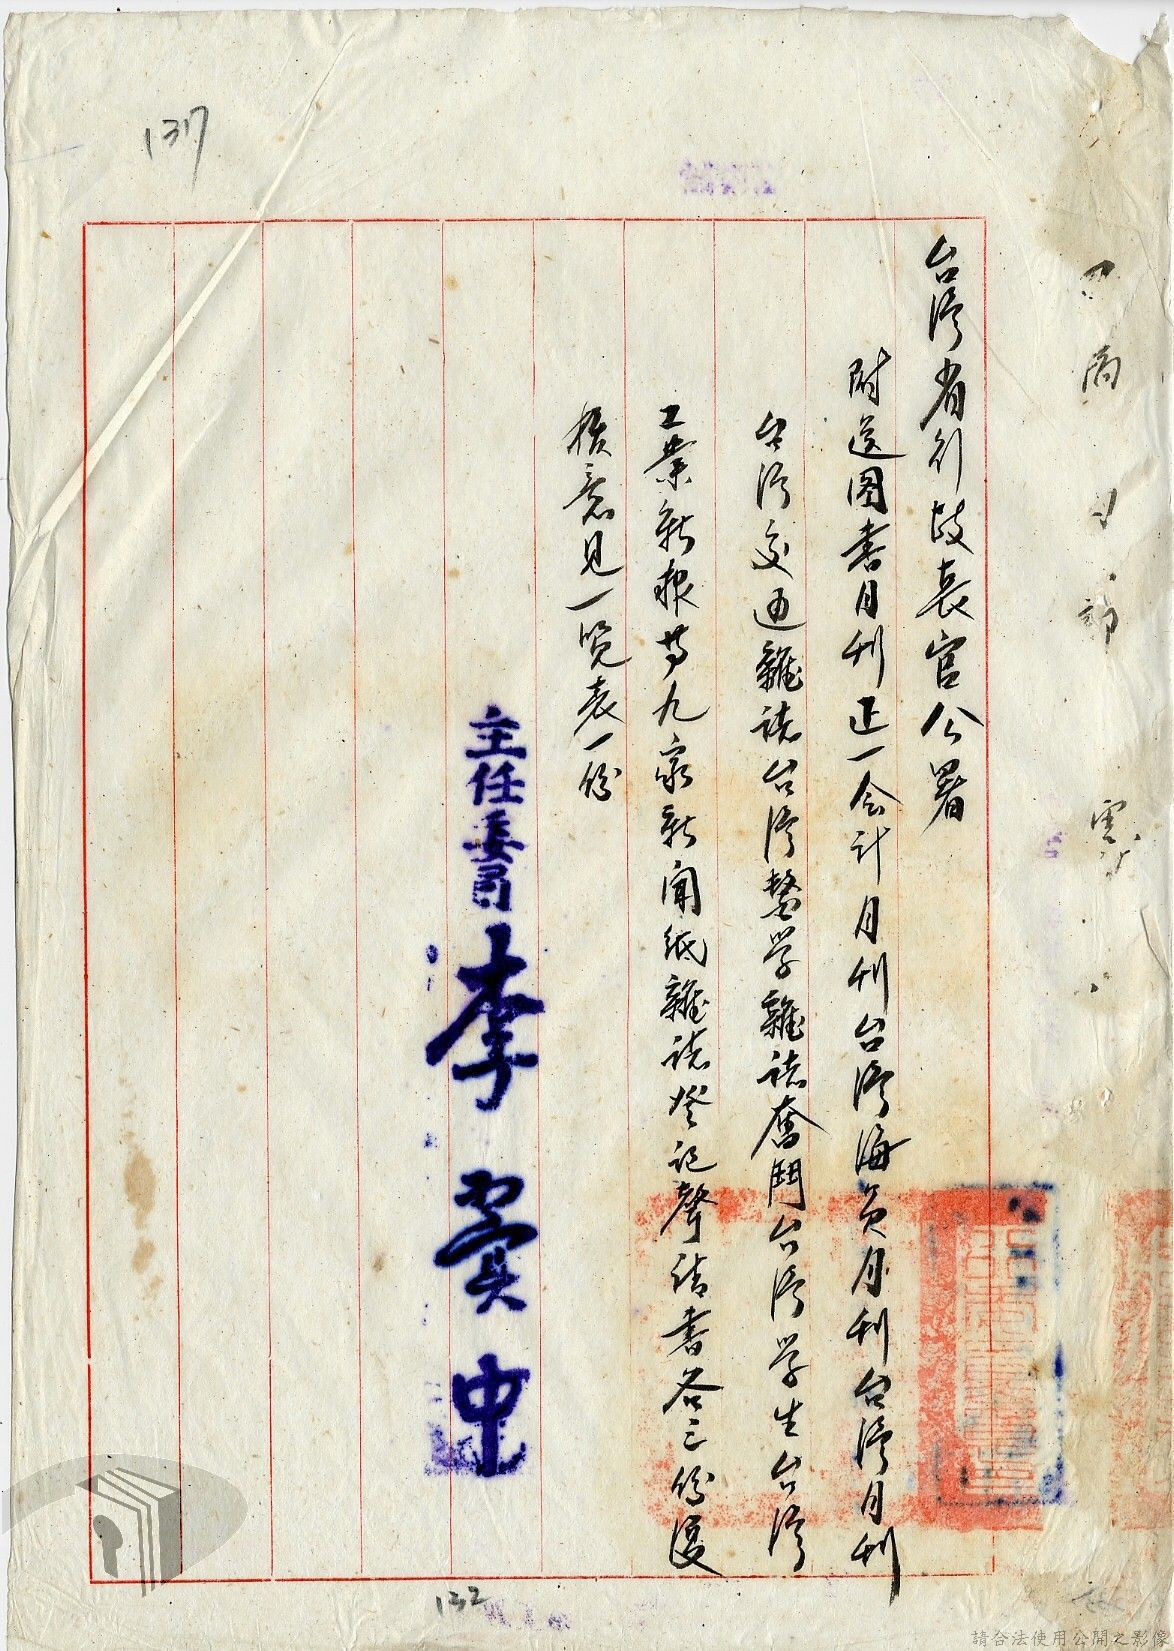 137
台湾省行政長官公署
附送图書月刊正一会计月刊台湾海員月刊台湾月刊
台湾交通雜誌台湾醫学雜誌奮鬥台湾学生台湾
工業新報等九家新闻紙雜誌登记聲请書各三份復
核意见一览表一份
主任委員李翼中
132
請合法使用公開之影像